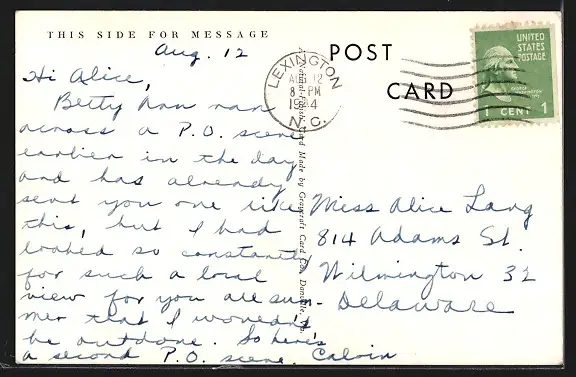 THIS SIDE FOR MESSAGE
Aug. 12
Hi Alice,
Betty Ann ran
across a P.O. scene
earlier in the day
and has already
sent you one like
this, but I had
looked so constantly
for such a local
view for you all sum-
mer that I wouldn't
be outdone. So here's
a second P.O. scene. Calvin
A Natural-Finish Card Made by Graycraft Card Co., Danville, Va.
POST
CARD
LEXINGTON
AUG 12
8 PM
N.C.
UNITED
STATES
POSTAGE
1 CENT 1
Miss Alice Lang
814 Adams St.
Wilmington 32
Delaware